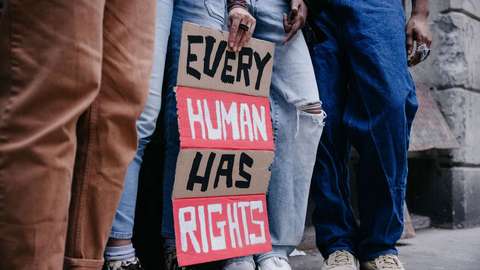 EVERY
HUMAN
HAS
RIGHTS